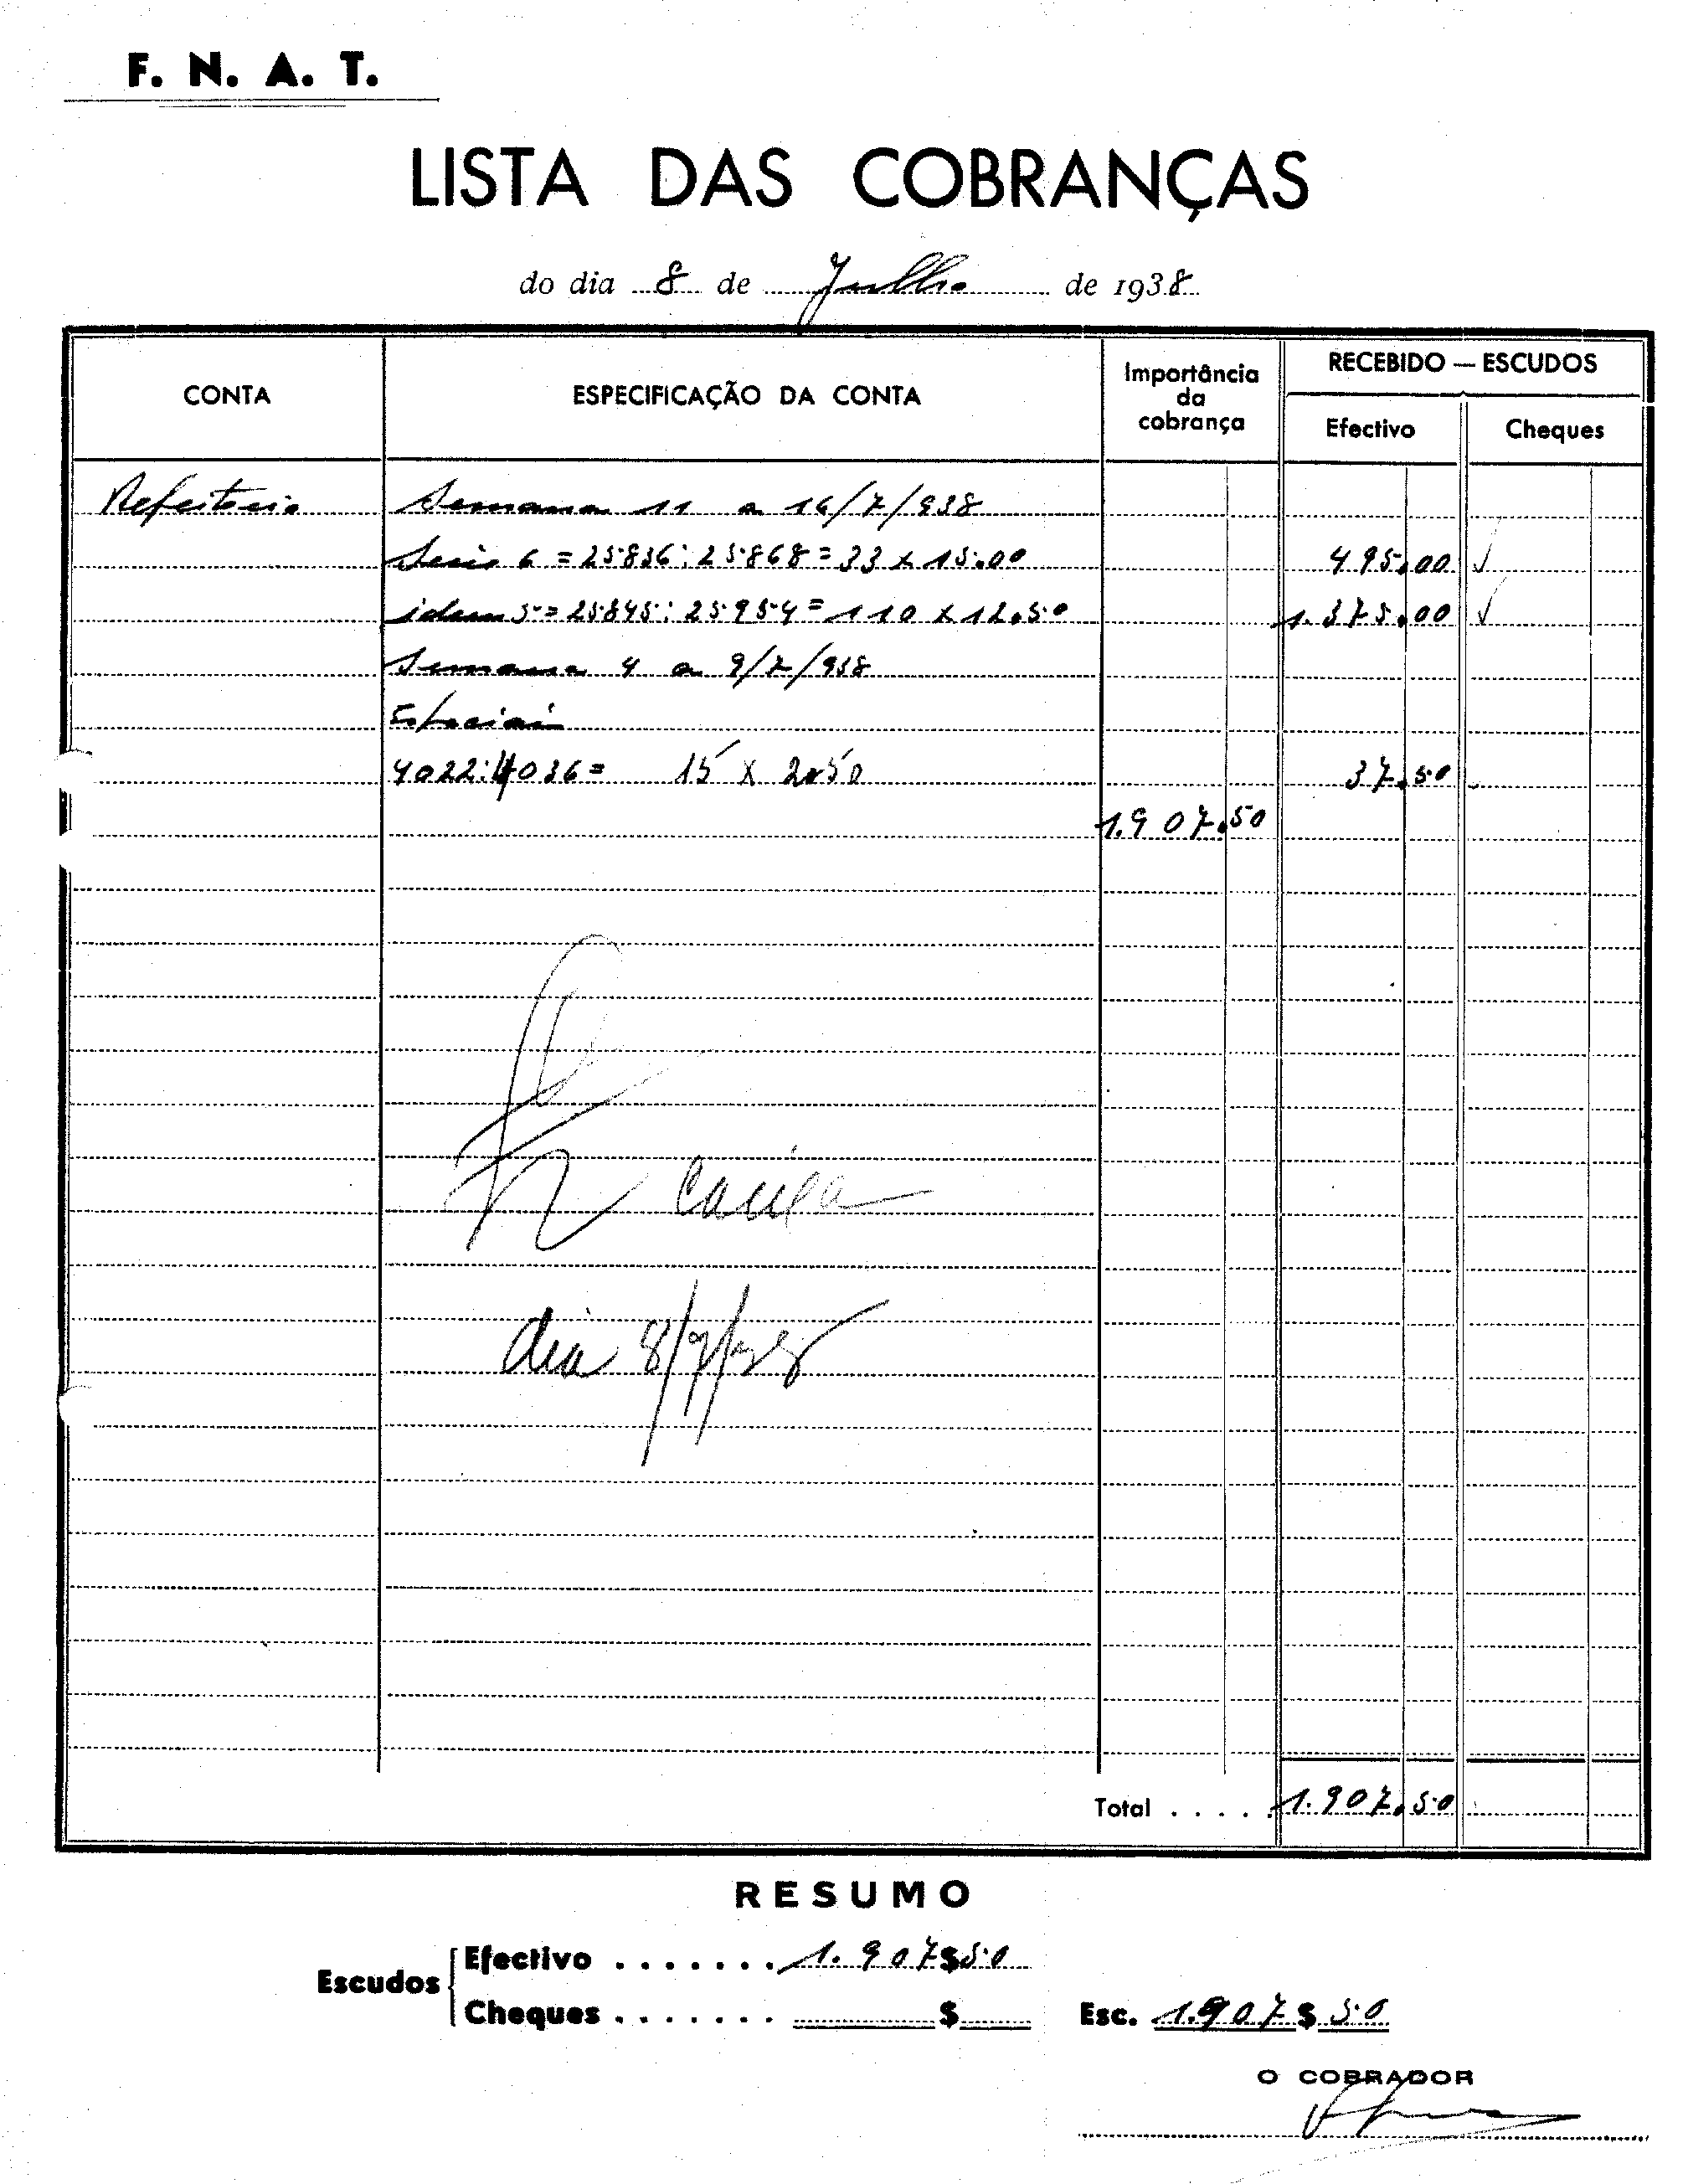 F. N. A. T.
LISTA DAS COBRANÇAS
do dia 8 de Julho de 1938
CONTA
ESPECIFICAÇÃO DA CONTA
Importância
da
cobrança
RECEBIDO — ESCUDOS
Efectivo
Cheques
Refeitorio Semana 11 a 16/7/938
Seris 6 = 25.836 : 25.868 = 33 x 15.00 495.00 ✓
idem 5 = 25.845 : 25.954 = 110 x 12.50 1.375.00 ✓
Semana 4 a 9/7/938
Especiais
4022 : 4036 = 15 x 2.50 37.50
1.907.50
Caixa
dia 8/7/38
Total . . . . . 1.907.50
RESUMO
Escudos
Efectivo . . . . . . . 1.907$50
Cheques . . . . . . . $
Esc. 1.907$50
O COBRADOR